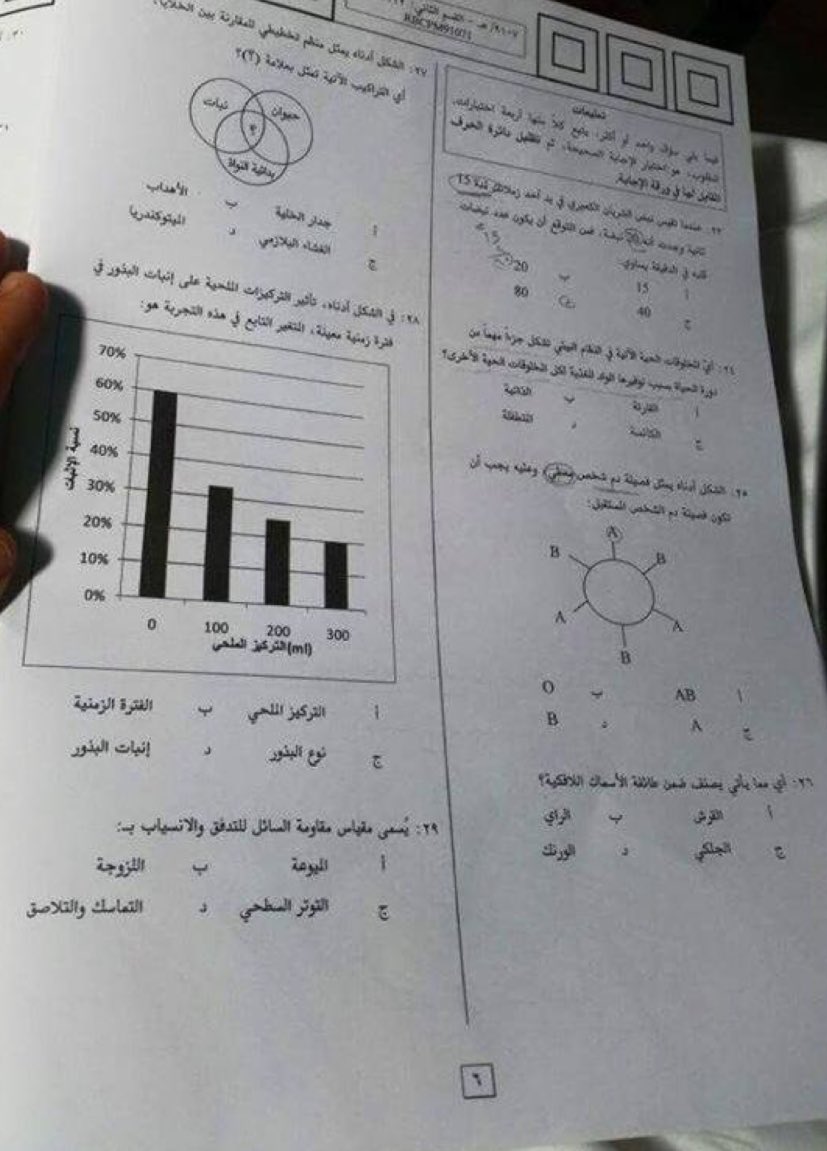 ٩١٠٧/ هـ - القسم الثاني
RBCP6M91071
تعليمات
فيما يلي سؤال واحد أو أكثر، يتبع كلاً منها أربعة اختيارات.
المطلوب: هو اختيار الإجابة الصحيحة، ثم تظليل دائرة الحرف
المقابل لها في ورقة الإجابة.
٢٣: عندما تقيس نبض الشريان الكعبري في يد أحد زملائك لمدة 15
ثانية وجدت أنه 20 نبضة، فمن المتوقع أن يكون عدد نبضات
قلبه في الدقيقة يساوي:
أ 15 ب 20
ج 40 د 80
٢٤: أيّ المخلوقات الحية الآتية في النظام البيئي تشكل جزءاً مهماً من
دورة الحياة بسبب توفيرها المواد المغذية لكل المخلوقات الحية الأخرى؟
أ القارتة ب الذاتية
ج الكانسة د المتطفلة
٢٥: الشكل أدناه يمثل فصيلة دم شخص معطي، وعليه يجب أن
تكون فصيلة دم الشخص المستقبل:
A
B B
A A
B
أ AB ب O
ج A د B
٢٦: أي مما يأتي يصنف ضمن طائفة الأسماك اللافكية؟
أ القرش ب الراي
ج الجلكي د الورنك
٢٧: الشكل أدناه يمثل منظم تخطيطي للمقارنة بين الخلايا،
أي التراكيب الآتية تمثل بعلامة (؟)؟
نبات حيوان
؟
بدائية النواة
أ جدار الخلية ب الأهداب
ج الغشاء البلازمي د الميتوكندريا
٢٨: في الشكل أدناه، تأثير التركيزات الملحية على إنبات البذور في
فترة زمنية معينة، المتغير التابع في هذه التجربة هو:
70%
60%
50%
40%
30%
20%
10%
0%
نسبة الإنبات
0 100 200 300
التركيز الملحي(ml)
أ التركيز الملحي ب الفترة الزمنية
ج نوع البذور د إنبات البذور
٢٩: يُسمى مقياس مقاومة السائل للتدفق والانسياب بـ:
أ الميوعة ب اللزوجة
ج التوتر السطحي د التماسك والتلاصق
٦